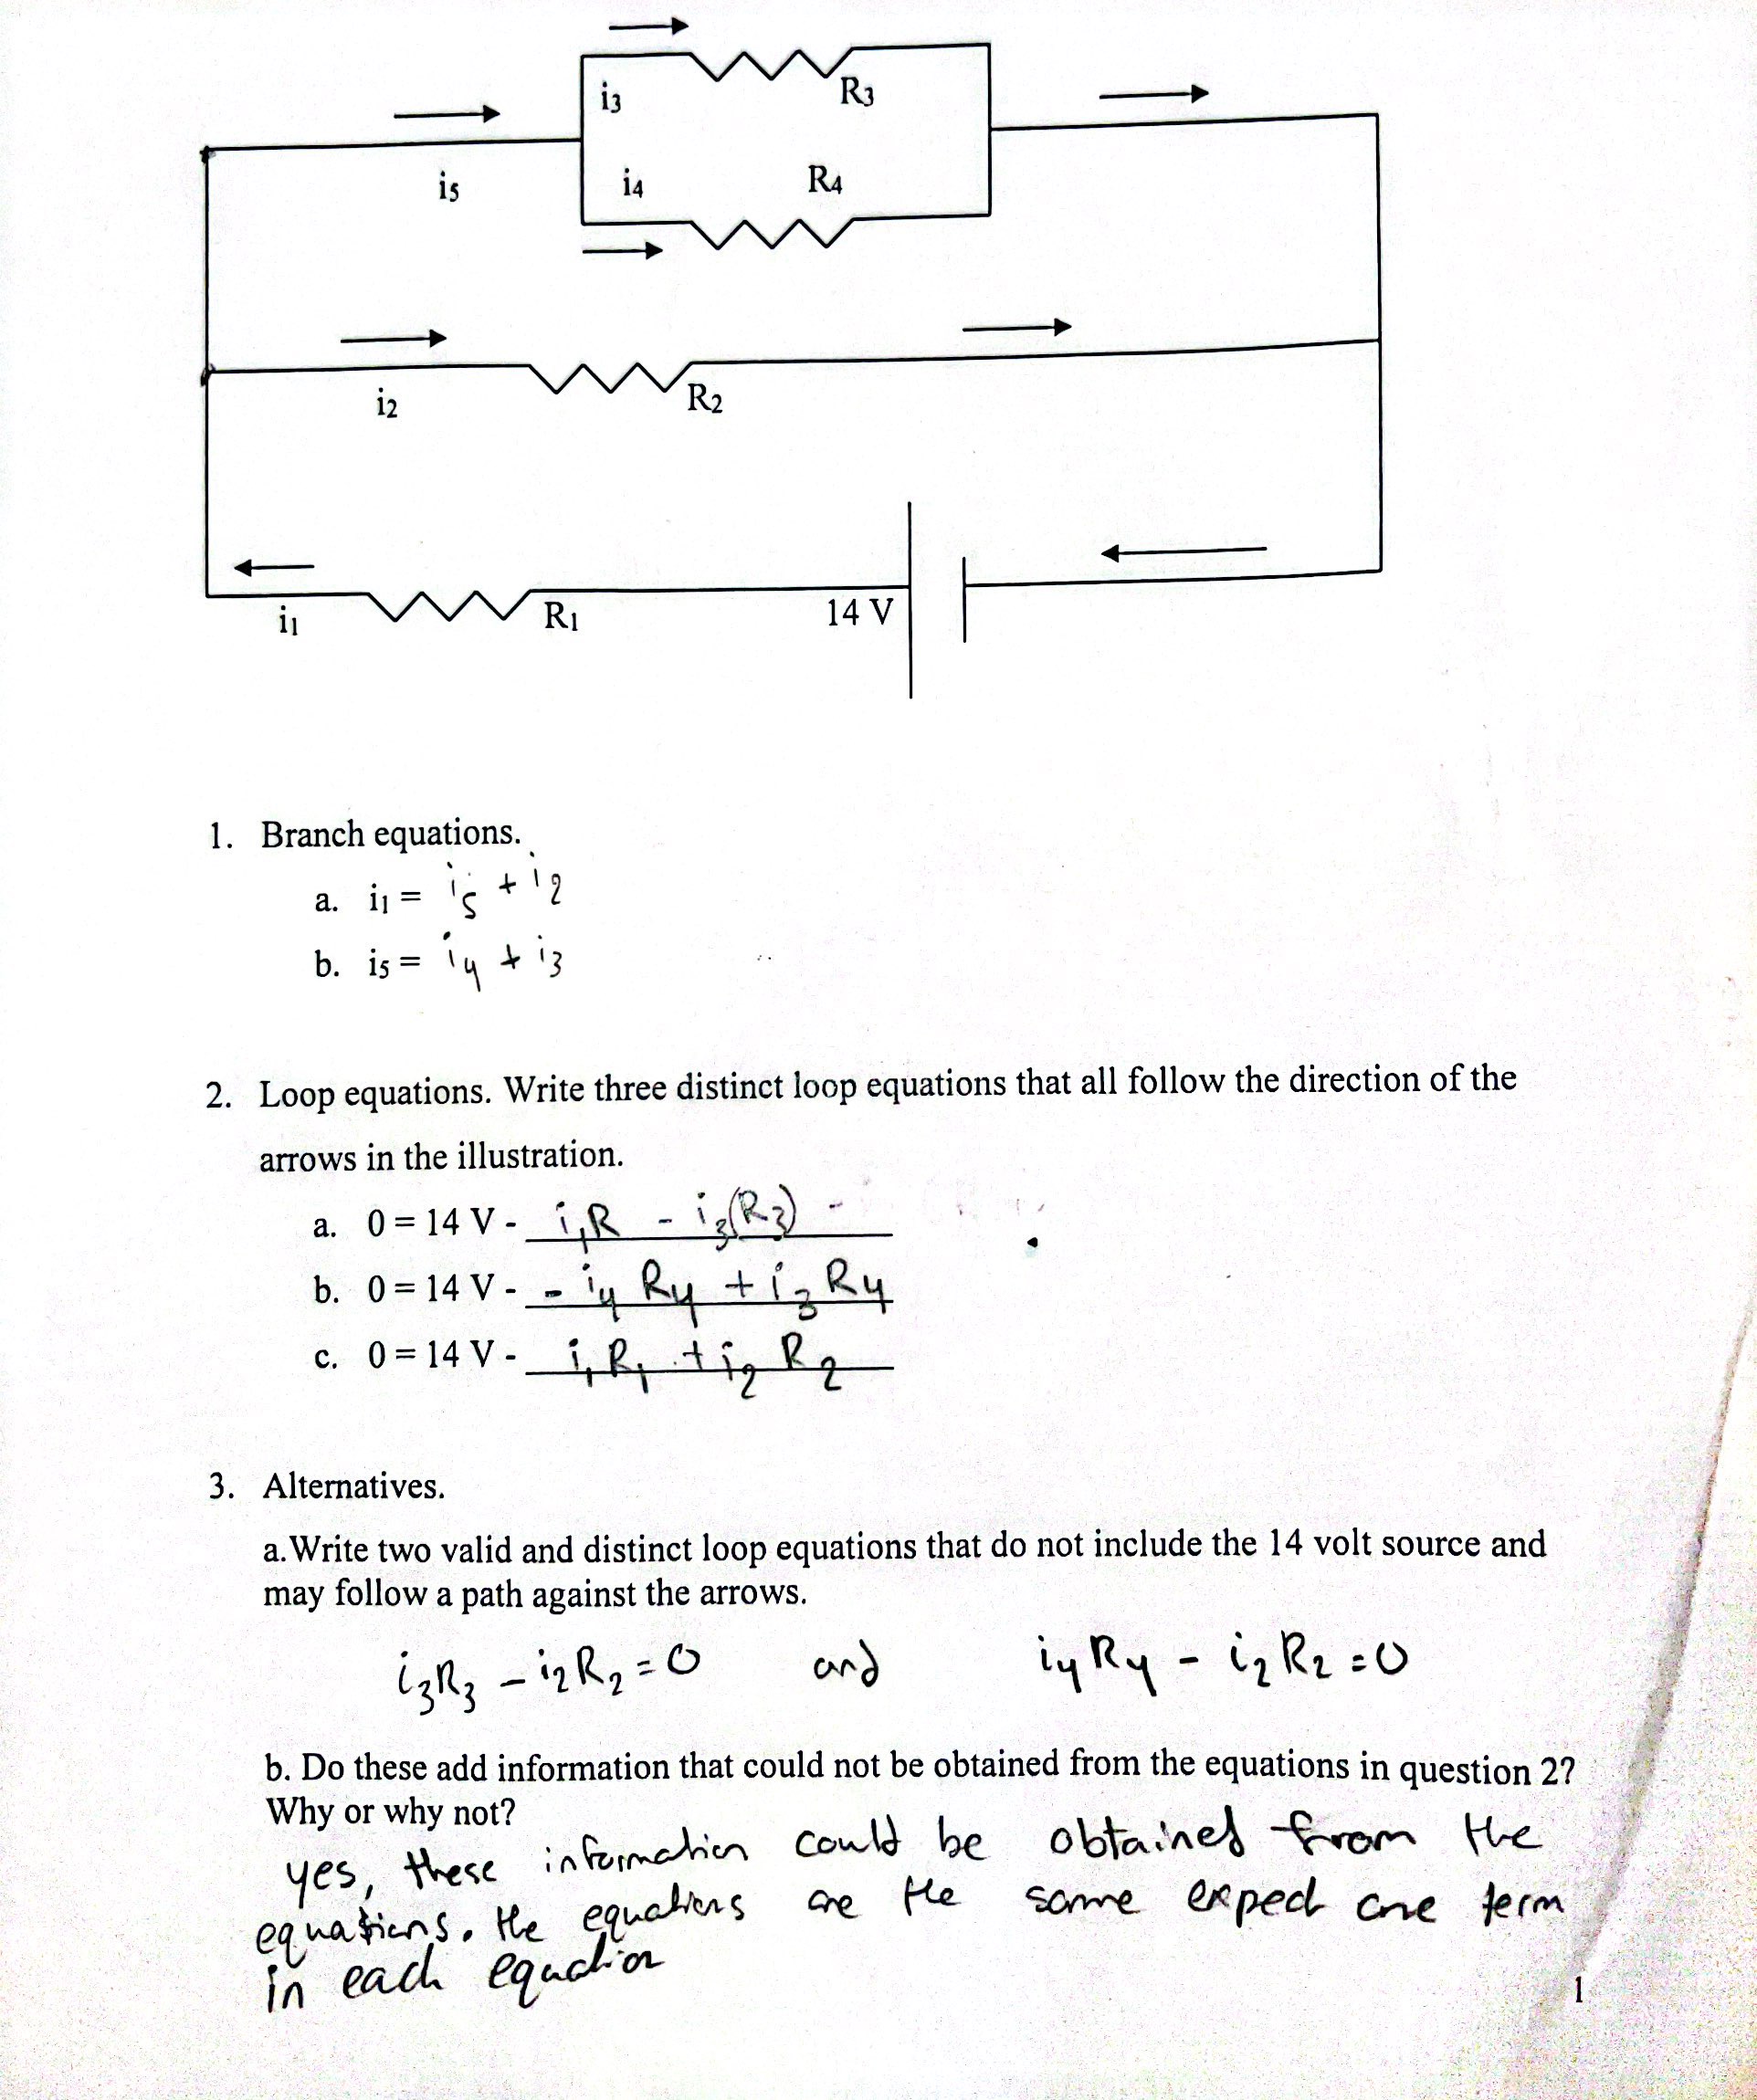 i3 R3
i5 i4 R4
i2 R2
i1 R1 14 V
1. Branch equations.
a. i1 = i5 + i2
b. i5 = i4 + i3
2. Loop equations. Write three distinct loop equations that all follow the direction of the
arrows in the illustration.
a. 0 = 14 V - i1R - i3(R3) -
b. 0 = 14 V - - i4 R4 + i3 R4
c. 0 = 14 V - i1 R1 + i2 R2
3. Alternatives.
a. Write two valid and distinct loop equations that do not include the 14 volt source and
may follow a path against the arrows.
i3R3 - i2R2 = 0 and i4R4 - i2R2 = 0
b. Do these add information that could not be obtained from the equations in question 2?
Why or why not?
yes, these information could be obtained from the
equations. the equations are the same expect one term
in each equation
1